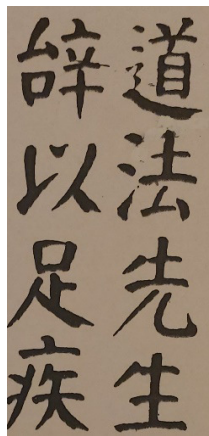 道法先生
辤以足疾